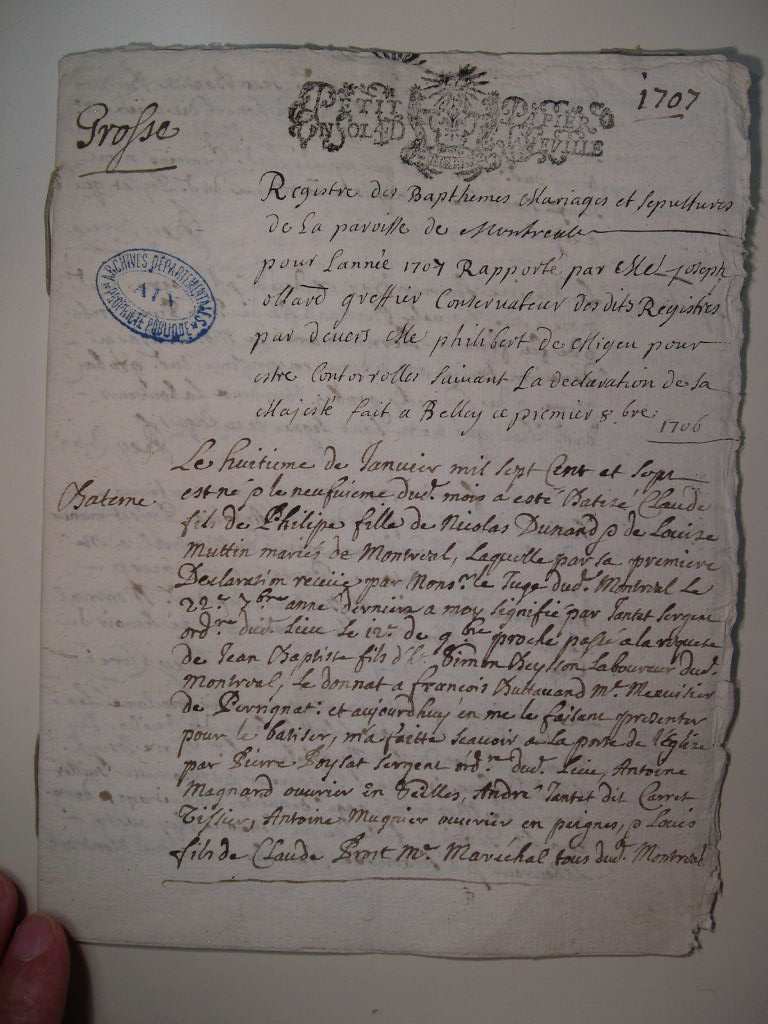 1707
Grosse
PETIT PAPIER
ARCHIVES DEPARTEMENTALES
AIN
PROPRIETE PUBLIQUE
Registre des Bapthemes Mariages et sepultures
de La paroisse de Montreal
pour Lannée 1707 Rapporté par Me Joseph
ollard greffier Conservateur des dits Registres
par devers Me philibert de Migeu pour
estre Contorrolles suivant La declaration de sa
Majesté fait a Belley ce premier 8.bre
1706
Bateme
Le huitieme de Janvier mil sept Cent et sept
est né p le neufuieme dud. mois a esté Batizé Claude
fils de Philipe fille de Nicolas Dunand p de Louize
Muttin mariés de Montreal, Laquelle par sa premiere
Declaration receüe par Mons.r le Juge dud. Montreal Le
22.e 7.bre anné derniere a moy signifié par Tantet sergent
ord.re dud. Lieu Le 12.e de 9.bre proche passé a la requete
de Jean Baptiste fils d' Simon Laboureur dud.
Montreal, Le donnat a françois M.e Menuisier
de Perrignat: et aujourdhuy en me le faisant presenter
pour le batiser, m'a faitte scavoir a La porte de l'Eglize
par Pierre Poysat sergent ord.re dud. Lieu, Antoine
Magnard ouvrier En Toilles, André Tantet dit Carret
Tissier, Antoine Mugnier ouvrier en peignes, p Louis
fils de Claude Prost M.e Maréchal tous dud. Montreal